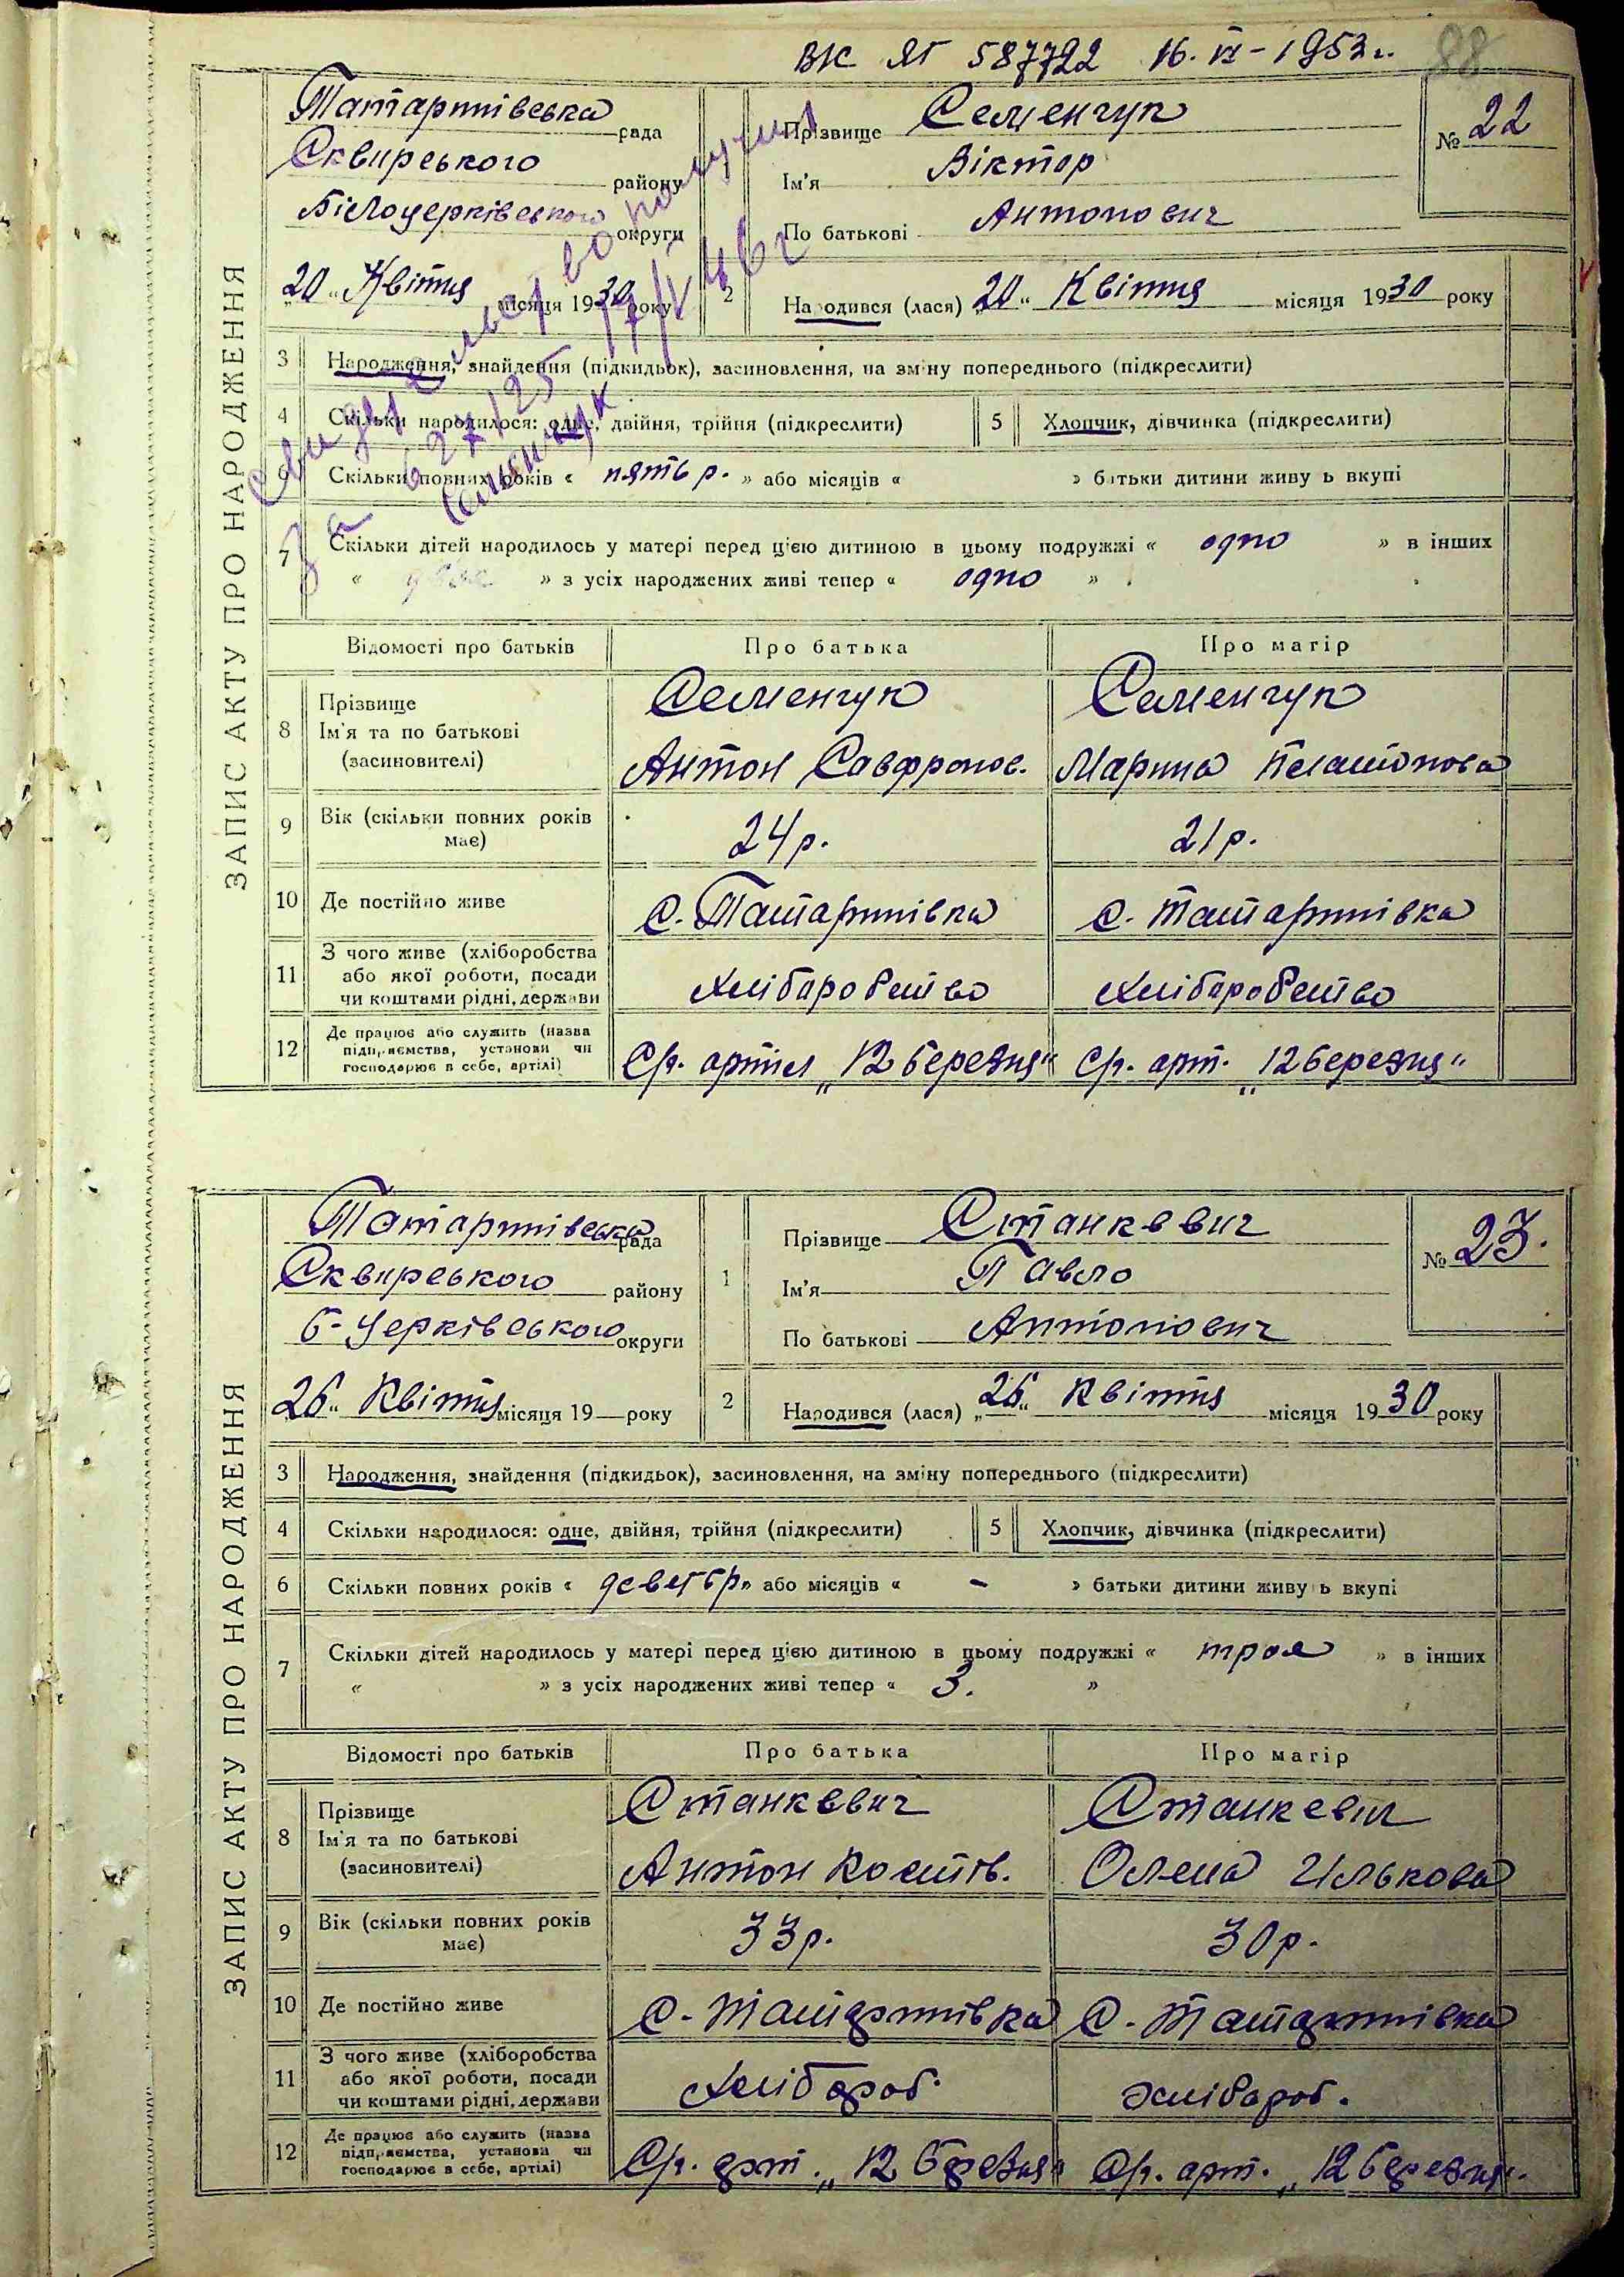 ВК ЯГ 587722 16. VI - 1953 г.
88
ЗАПИС АКТУ ПРО НАРОДЖЕННЯ
Татаринівська рада
Сквирського району
Білоцерківського округи
„20“ Квітня місяця 1930 року
Прізвище Семенчук
Ім'я Віктор
По батькові Антонович
№ 22
2 Народився (лася) „20“ Квітня місяця 1930 року
Свидетельство получил
За 627125 17/V 46 г
Семенчук
3 Народження, знайдення (підкидьок), засиновлення, на зміну попереднього (підкреслити)
4 Скільки народилося: одне, двійня, трійня (підкреслити)
5 Хлопчик, дівчинка (підкреслити)
6 Скільки повних років « пять р. » або місяців « » батьки дитини живуть вкупі
7 Скільки дітей народилось у матері перед цією дитиною в цьому подружжі « одно » в інших
« » з усіх народжених живі тепер « одно »
Відомості про батьків Про батька Про матір
8 Прізвище Семенчук Семенчук
Ім'я та по батькові
(засиновителі) Антон Савфронов. Марина
9 Вік (скільки повних років має) 24 р. 21 р.
10 Де постійно живе с. Татаринівка с. Татаринівка
11 З чого живе (хліборобства
або якої роботи, посади
чи коштами рідні, держави Хліборобство Хліборобство
12 Де працює або служить (назва
підприємства, установи чи
господарює в себе, артілі) С/г. артіл „12 березня“ С/г. арт. „12 березня“
ЗАПИС АКТУ ПРО НАРОДЖЕННЯ
Татаринівська рада
Сквирського району
Б-Церківського округи
26“ Квітня місяця 19 — року
1 Прізвище Станкевич
Ім'я Павло
По батькові Антонович
№ 23.
2 Народився (лася) „26“ Квітня місяця 1930 року
3 Народження, знайдення (підкидьок), засиновлення, на зміну попереднього (підкреслити)
4 Скільки народилося: одне, двійня, трійня (підкреслити)
5 Хлопчик, дівчинка (підкреслити)
6 Скільки повних років « деветь р » або місяців « - » батьки дитини живуть вкупі
7 Скільки дітей народилось у матері перед цією дитиною в цьому подружжі « троя » в інших
« » з усіх народжених живі тепер « 3. »
Відомості про батьків Про батька Про матір
8 Прізвище Станкевич Станкевич
Ім'я та по батькові
(засиновителі) Антон Костів. Олена Ількова
9 Вік (скільки повних років має) 33 р. 30 р.
10 Де постійно живе с. Татаринівка с. Татаринівка
11 З чого живе (хліборобства
або якої роботи, посади
чи коштами рідні, держави Хлібороб. Хлібороб.
12 Де працює або служить (назва
підприємства, установи чи
господарює в себе, артілі) С/г. арт. „12 березня“ С/г. арт. „12 березня“.